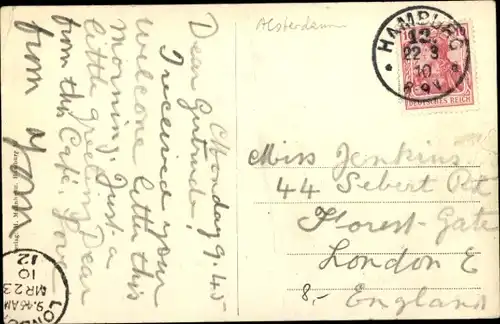 Alsterdamm
HAMBURG
13.
22 3
10
DEUTSCHES REICH
Monday 9.45
Dear Gertrude!
I received your
welcome letter this
morning. Just a
little greeting Dear
from this Café. Love
from
Miss Jenkins
44 Sebert Rd
Forest-Gate
London E
8,- England
LONDON
9.15AM
MR 23
10
12